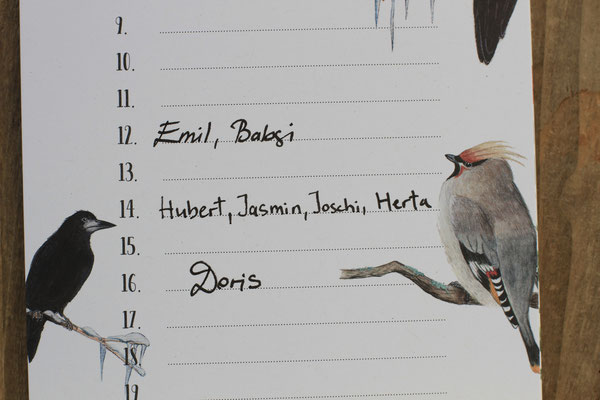 9.
10.
11.
12. Emil, Babsi
13.
14. Hubert, Jasmin, Joschi, Herta
15.
16. Doris
17.
18.
19